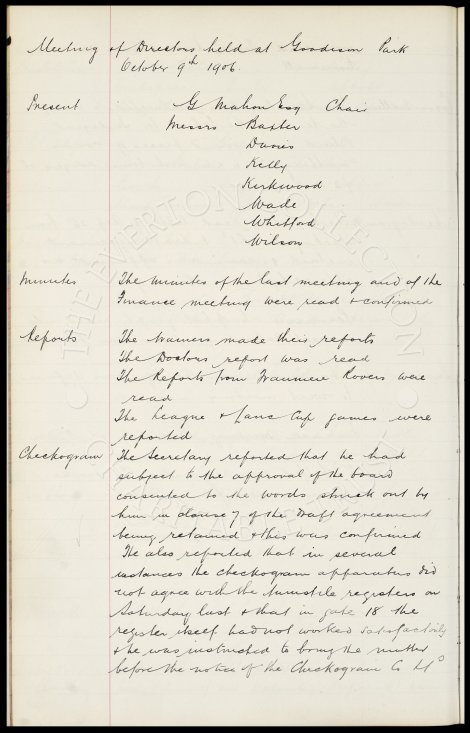 Meeting of Directors held at Goodison Park
October 9th 1906.
Present G Mahon Esq Chair
Messrs Baxter
Davies
Kelly
Kirkwood
Wade
Whitford
Wilson
Minutes The minutes of the last meeting and of the
Finance meeting were read & confirmed
Reports The trainers made their reports
The Doctors report was read
The Reports from Tranmere Rovers were
read
The League & Lancs Cup games were
reported
Checkogram The Secretary reported that he had
subject to the approval of the board
consented to the words struck out by
him in clause 7 of the draft agreement
being retained & this was confirmed
He also reported that in several
instances the checkogram apparatus did
not agree with the turnstile registers on
Saturday last & that in gate 18 the
register itself had not worked satisfactorily
& he was instructed to bring the matter
before the notice of the Checkogram Co Ld
THE EVERTON COLLECTION